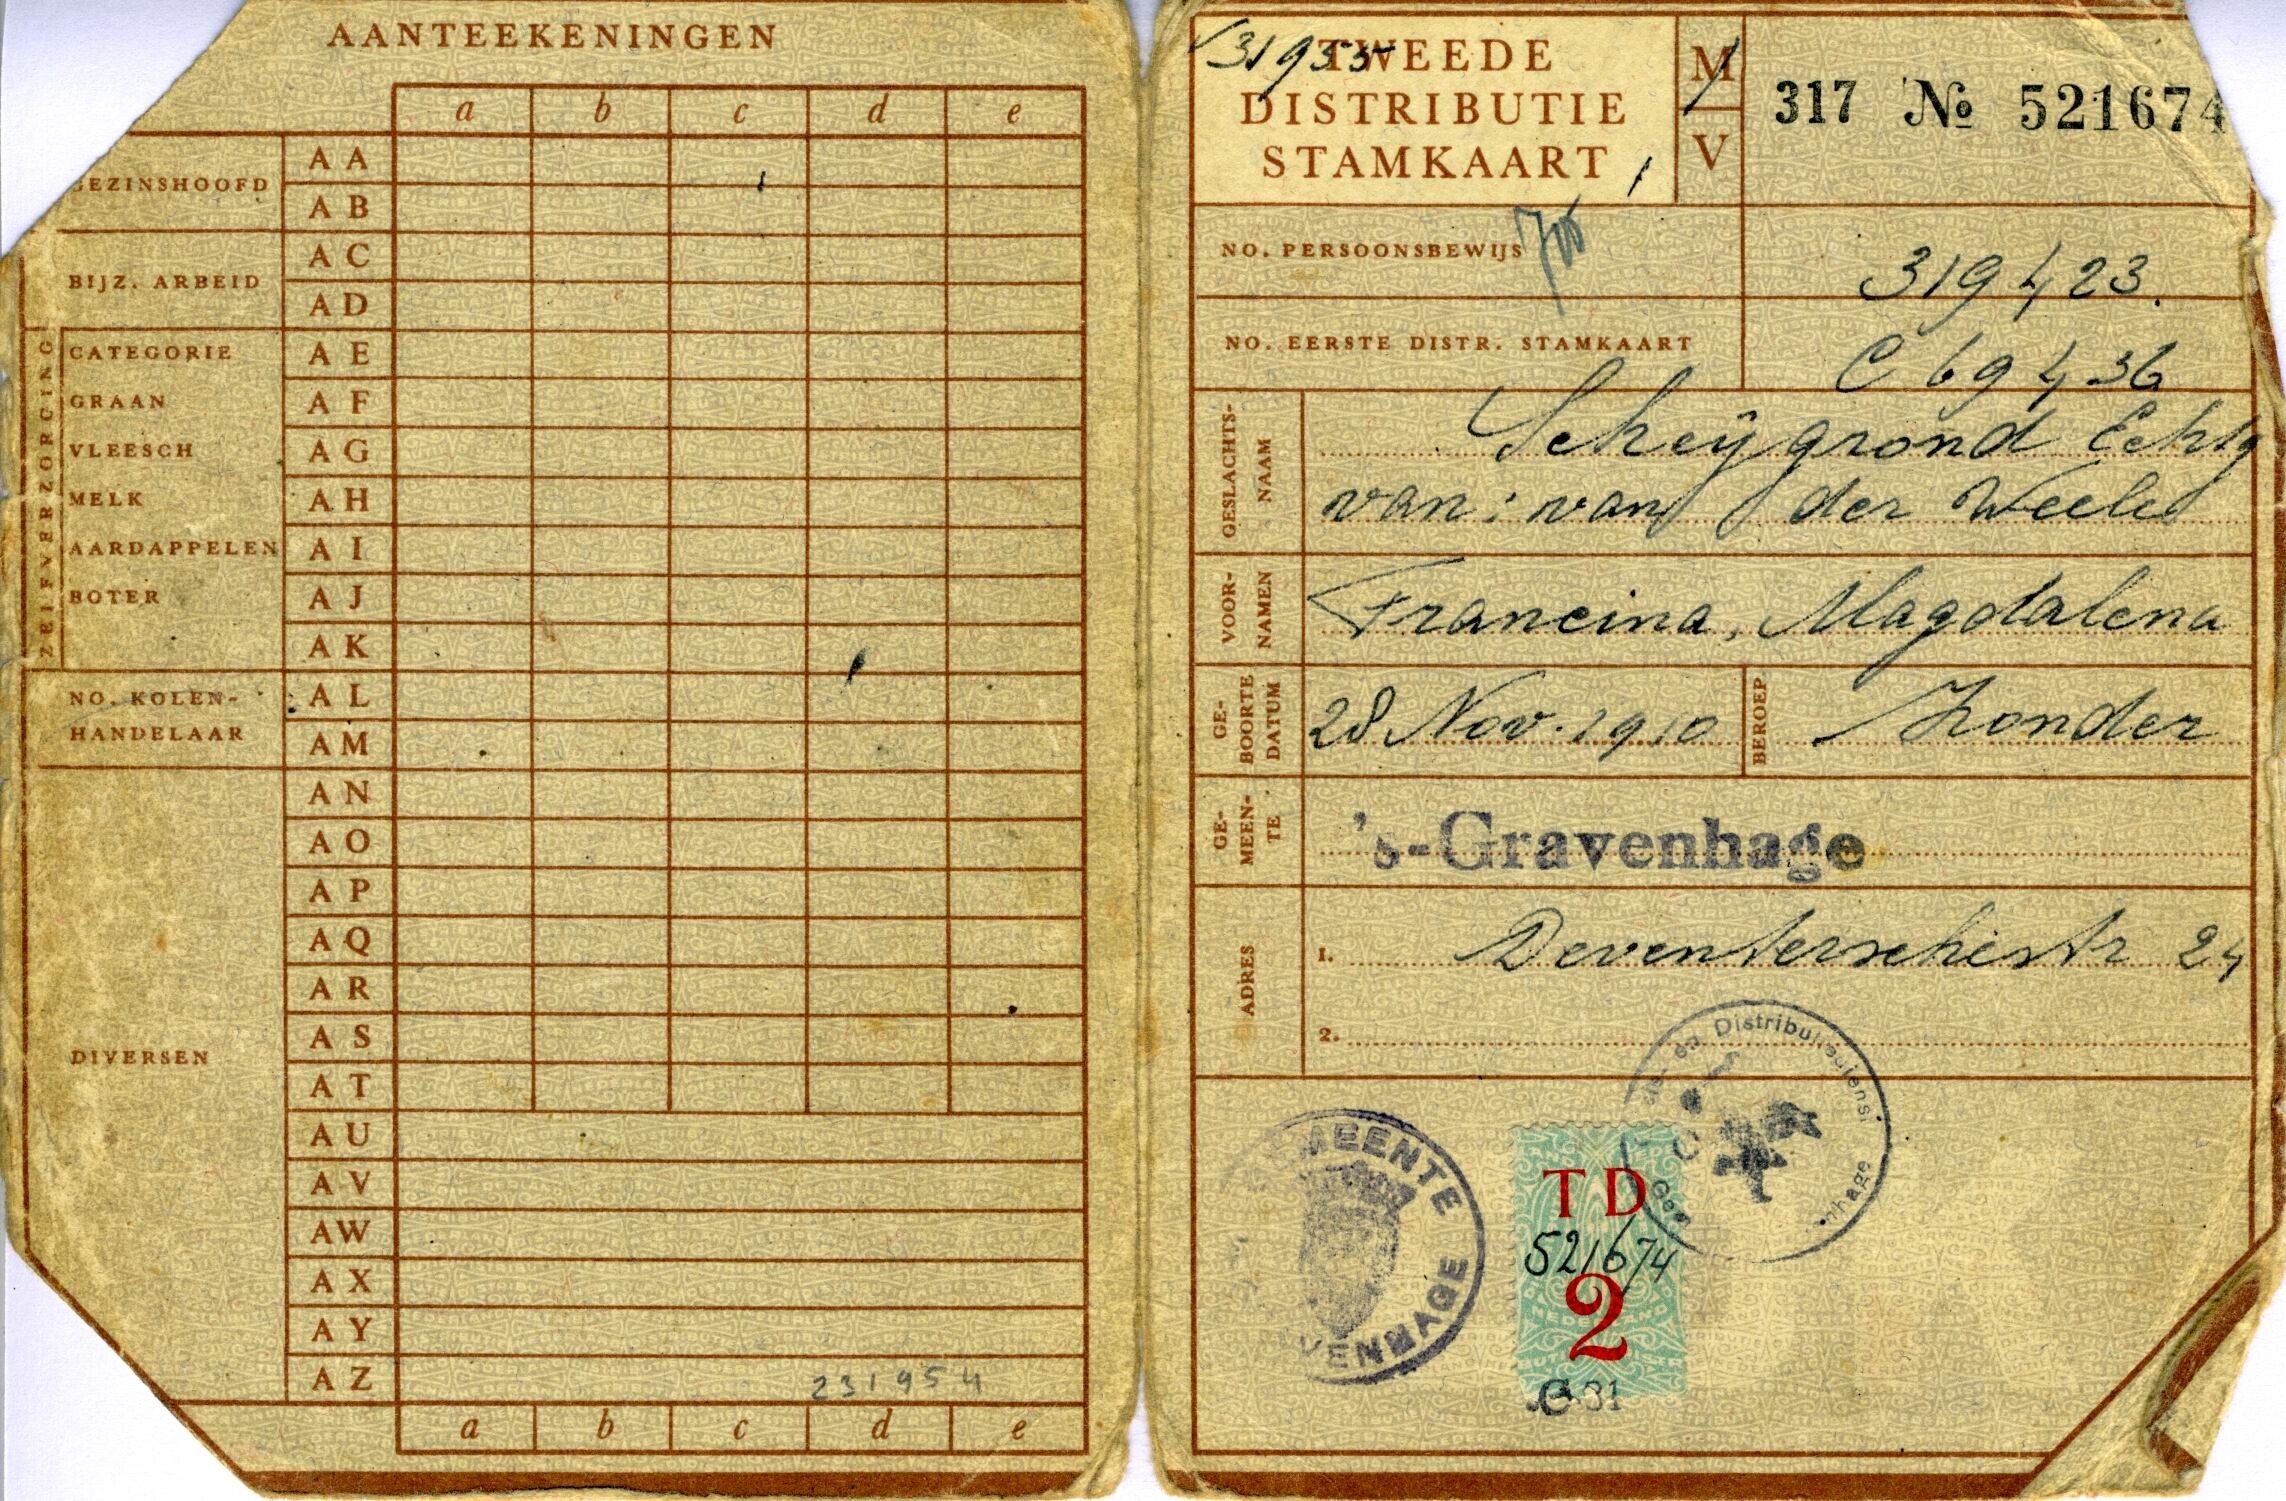 AANTEEKENINGEN
a b c d e
GEZINSHOOFD
AA
AB
BIJZ. ARBEID
AC
AD
ZELFVERZORGING
CATEGORIE AE
GRAAN AF
VLEESCH AG
MELK AH
AARDAPPELEN AI
BOTER AJ
AK
NO. KOLEN- AL
HANDELAAR AM
AN
AO
AP
AQ
AR
AS
DIVERSEN
AT
AU
AV
AW
AX
AY
AZ 231954
a b c d e
31955
TWEEDE
DISTRIBUTIE
STAMKAART
M
V
317 № 521674
NO. PERSOONSBEWIJS 319423.
NO. EERSTE DISTR. STAMKAART C 69436
GESLACHTS-
NAAM
Scheijgrond Echtg
van: van der Weele
VOOR-
NAMEN
Francina, Magdalena
GE-
BOORTE
DATUM
28 Nov. 1910
BEROEP
Zonder
GE-
MEEN-
TE
's-Gravenhage
ADRES
1. Deventerschestr 24
2.
en Distributiedienst
GEMEENTE
VENHAGE
nhage
TD
521674
2